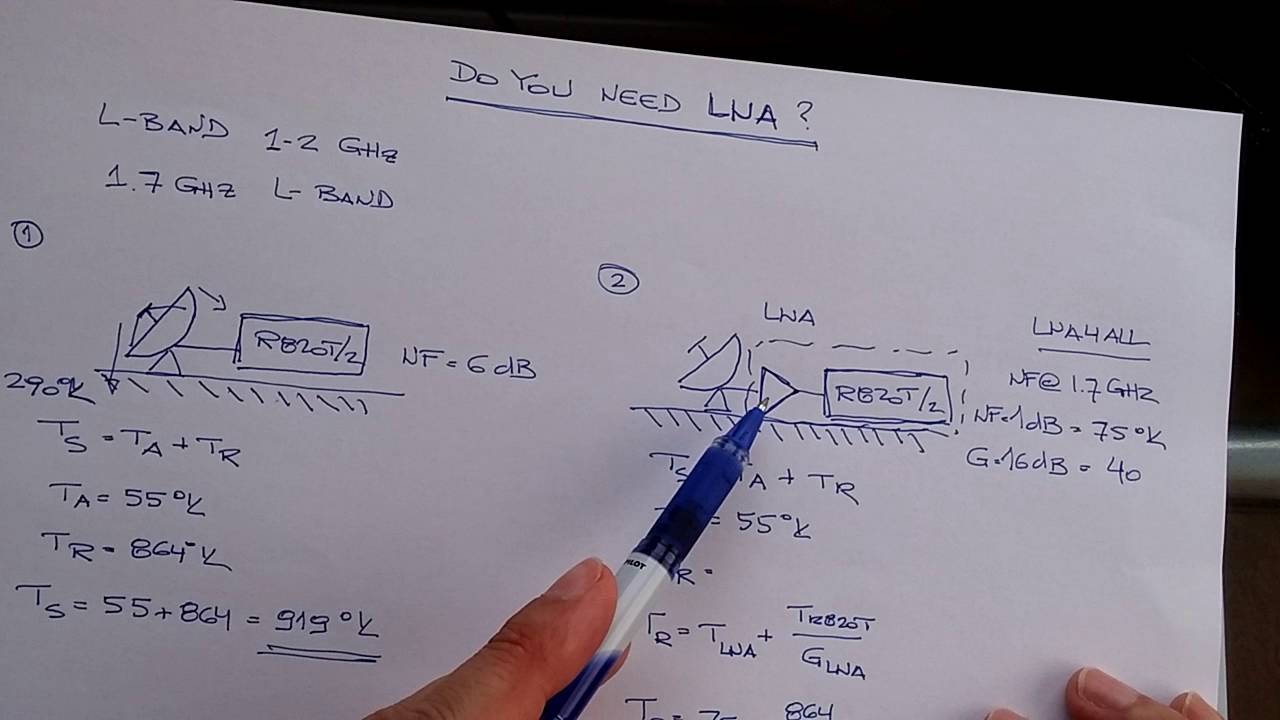 DO YOU NEED LNA?
L-BAND 1-2 GHz
1.7 GHZ L-BAND
①
RB20T/2
NF = 6 dB
290°K
TS = TA + TR
TA = 55°K
TR = 864°K
TS = 55 + 864 = 919°K
②
LNA
RB20T/2
LNA4ALL
NF@ 1.7 GHZ
NF=1dB = 75°K
G=16dB = 40
TS A + TR
= 55°K
R =
PILOT
TR = TLNA + TRB20T
GLNA
864